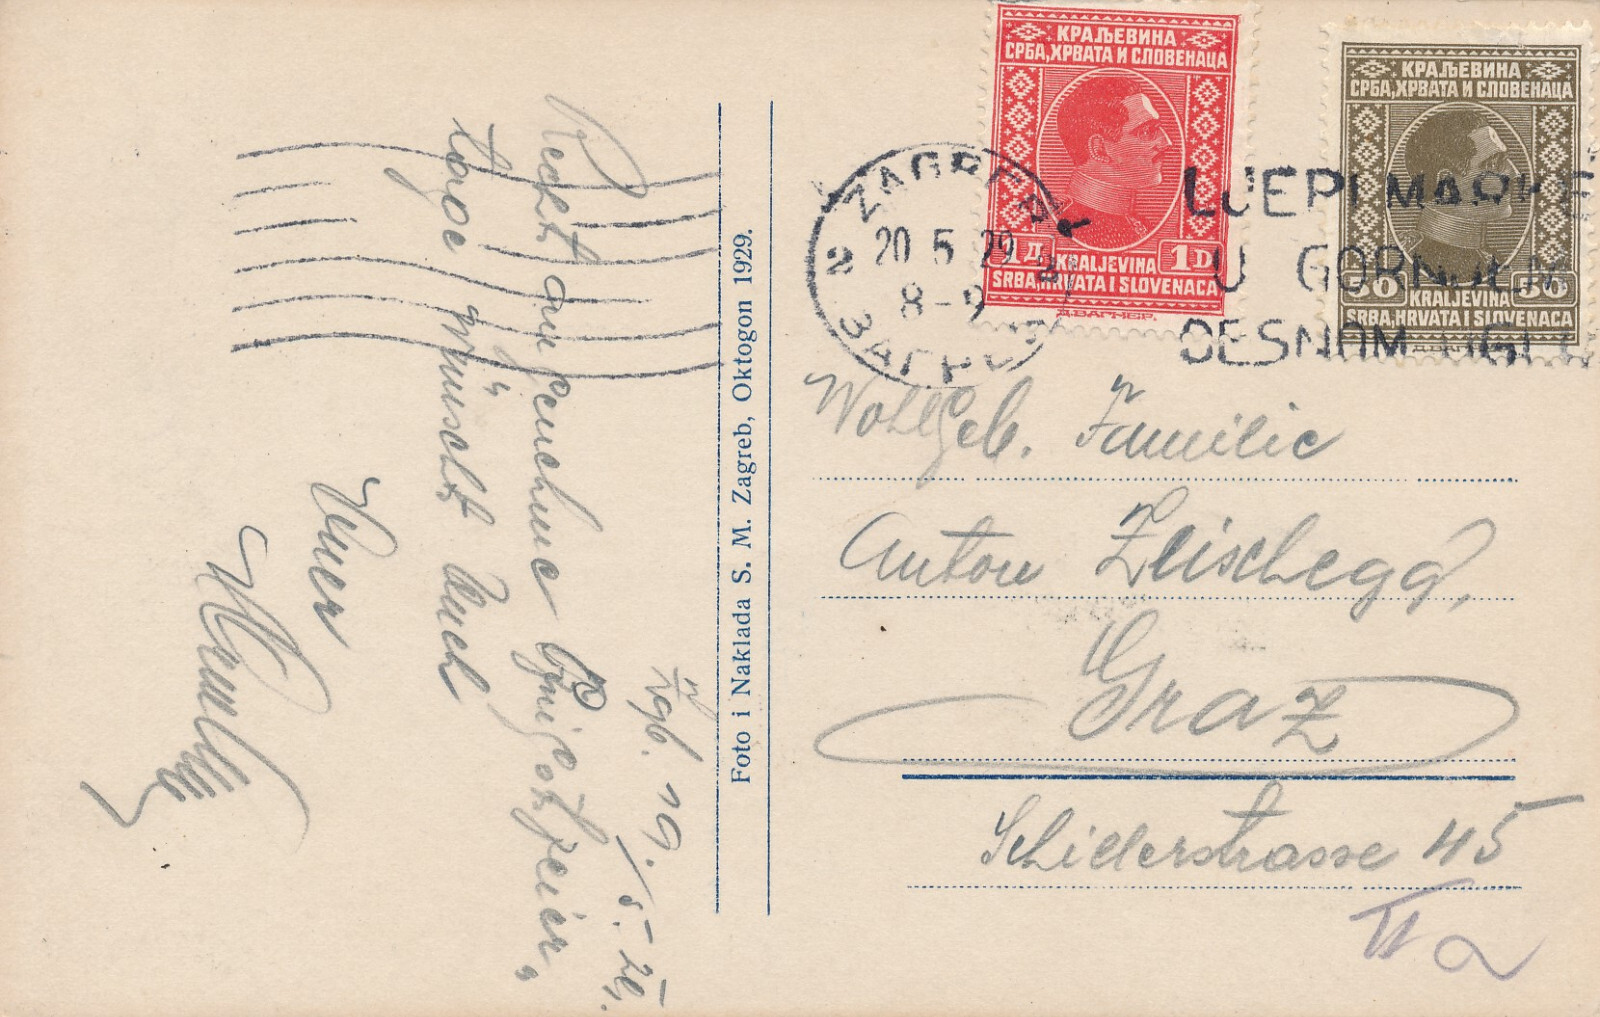 КРАЉЕВИНА
СРБА,ХРВАТА И СЛОВЕНАЦА
1Д 1D
KRALJEVINA
SRBA,HRVATA I SLOVENACA
Д.ВАГНЕР.
КРАЉЕВИНА
СРБА,ХРВАТА И СЛОВЕНАЦА
50 50
KRALJEVINA
SRBA,HRVATA I SLOVENACA
ZAGREB 1
2 20 5 29 2
8-9
ЗАГРЕБ
LJEPI MARKE
U GORNJEM
DESNOM UGLU
Zgb. 19./5. 29.
Recht angenehme Pfingstfeier,
tage wünscht Euch
Euer
Foto i Naklada S. M. Zagreb, Oktogon 1929.
Wohlgeb. Familie
Anton Zeischegg,
Graz
Schillerstrasse 45
II